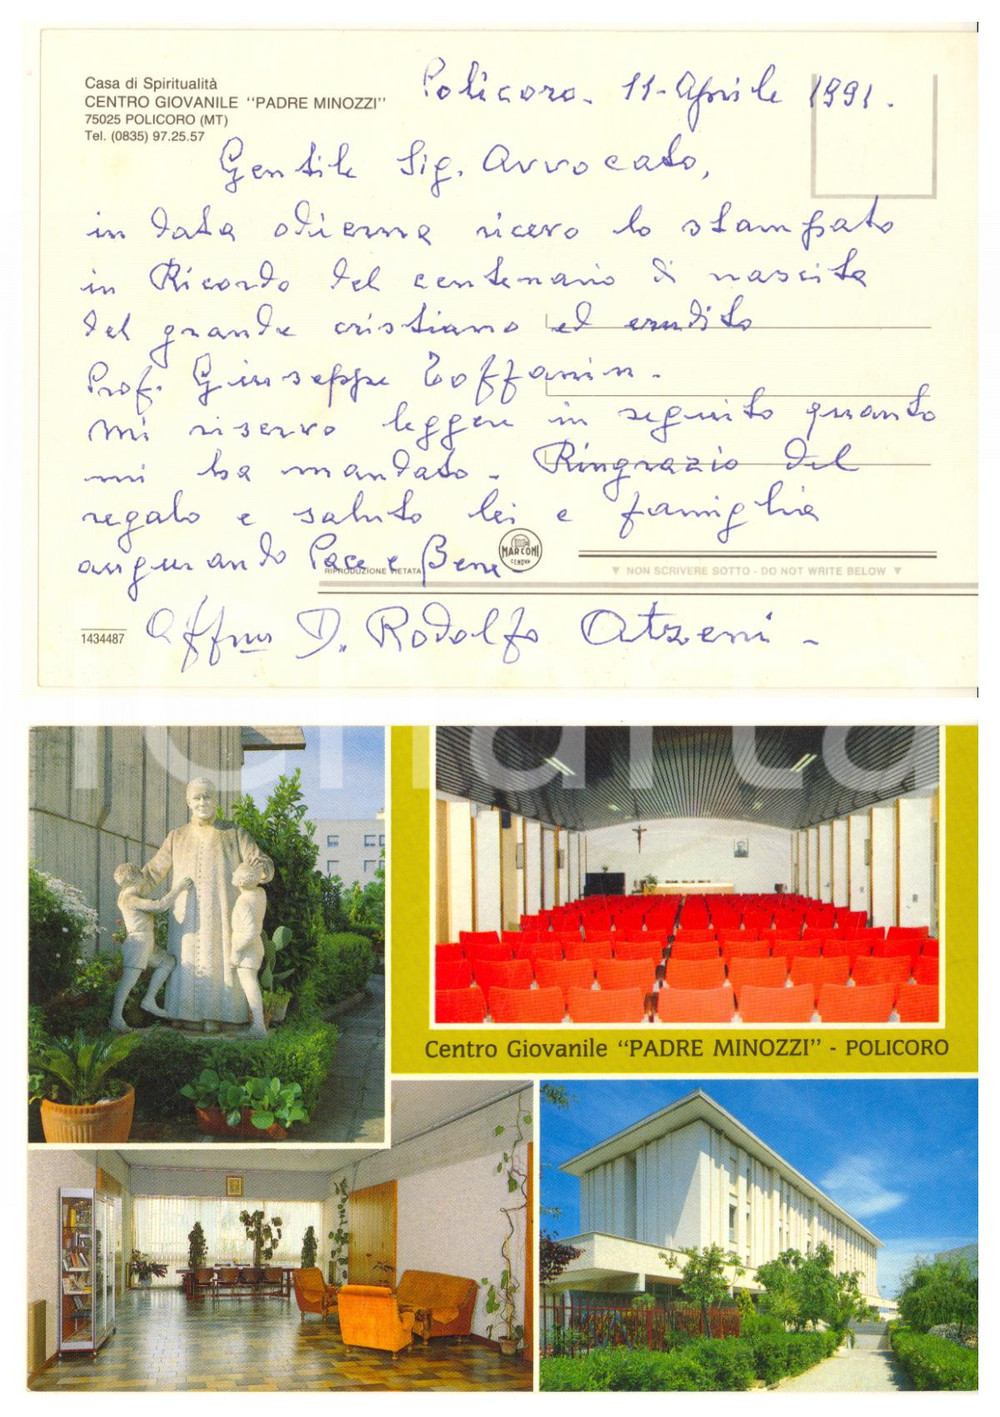 Casa di Spiritualità
CENTRO GIOVANILE "PADRE MINOZZI"
75025 POLICORO (MT)
Tel. (0835) 97.25.57
Policoro - 11 - Aprile 1991.
Gentile Sig. Avvocato,
in data odierna ricevo lo stampato
in Ricordo del centenario di nascita
del grande cristiano ed erudito
Prof. Giuseppe Toffanin.
Mi riservo leggere in seguito quanto
mi ha mandato - Ringrazio del
regalo e saluto lei e famiglia
augurando Pace e Bene -
MARCONI
GENOVA
RIPRODUZIONE VIETATA
▼ NON SCRIVERE SOTTO - DO NOT WRITE BELOW ▼
1434487
Affmo D. Rodolfo Atzeni -
charta
Centro Giovanile "PADRE MINOZZI" - POLICORO